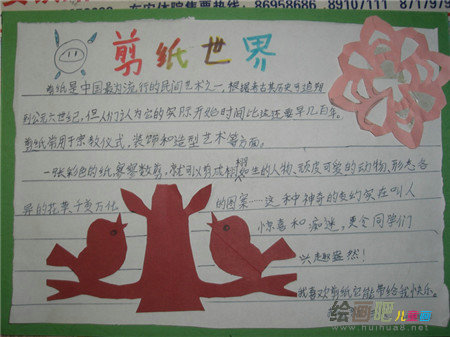 售票热线：86958686、89107111 8717975
剪纸世界
剪纸是中国最为流行的民间艺术之一，根据考古其历史可追朔
到公元六世纪，但人们认为它的实际开始时间比这还要早几百年。
剪纸常用于宗教仪式，装饰和造型艺术等方面。
一张彩色的纸，寥寥数剪，就可以剪成栩栩如生的人物、顽皮可爱的动物、形态各
异的花草千变万化的图案……这种神奇的变幻实在叫人
惊喜和痴迷，更令同学们
兴趣盎然！
我喜欢剪纸它能带给我快乐。
绘画吧 儿童画
www.huihua8.net